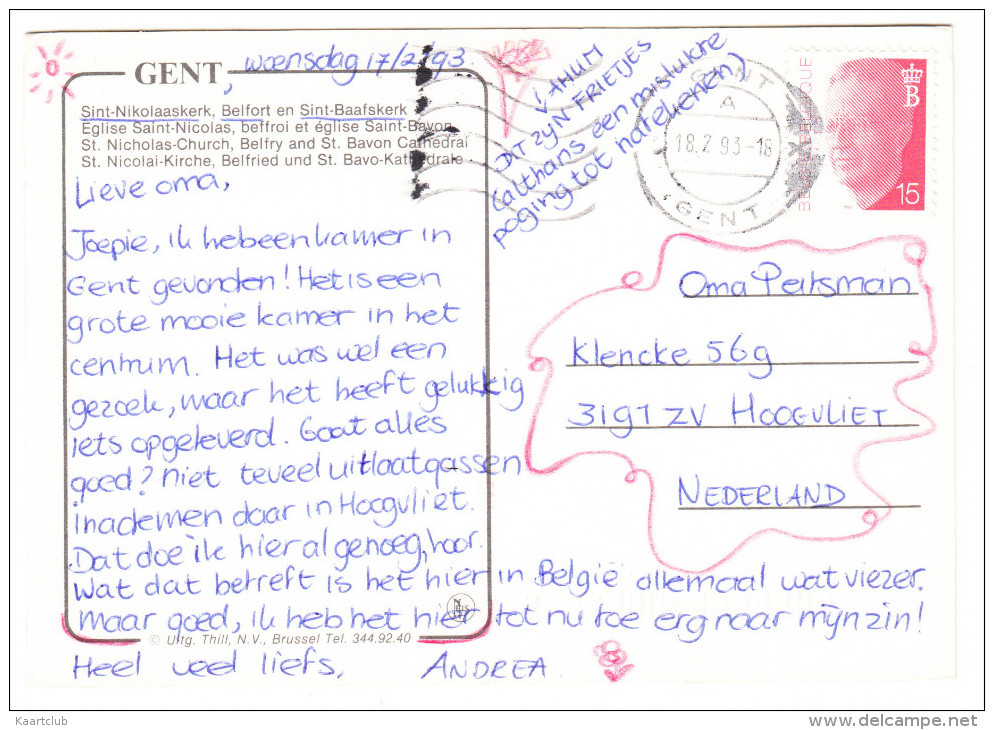 GENT, woensdag 17/2/93
Sint-Nikolaaskerk, Belfort en Sint-Baafskerk
Eglise Saint-Nicolas, beffroi et église Saint-Bavon
St. Nicholas-Church, Belfry and St. Bavon Cathedral
St. Nicolai-Kirche, Belfried und St. Bavo-Kathedrale
Lieve oma,
Joepie, ik heb een kamer in
Gent gevonden! Het is een
grote mooie kamer in het
centrum. Het was wel een
gezoek, maar het heeft gelukkig
iets opgeleverd. Gaat alles
goed? Niet teveel uitlaatgassen
inademen daar in Hoogvliet.
Dat doe ik hier al genoeg, hoor.
Wat dat betreft is het hier in België allemaal wat viezer.
Maar goed, ik heb het hier tot nu toe erg naar mijn zin!
© Uitg. Thill, N.V., Brussel Tel. 344.92.40
Heel veel liefs, ANDREA
AHUM
DIT ZYN FRIETJES
(althans een mislukte
poging tot natekenen)
GENT
A
18.2.93-18
GENT
BELGIE-BELGIQUE
B
15
Oma Peksman
Klencke 56g
3191 ZV HOOGVLIET
NEDERLAND
Kaartclub
www.delcampe.net